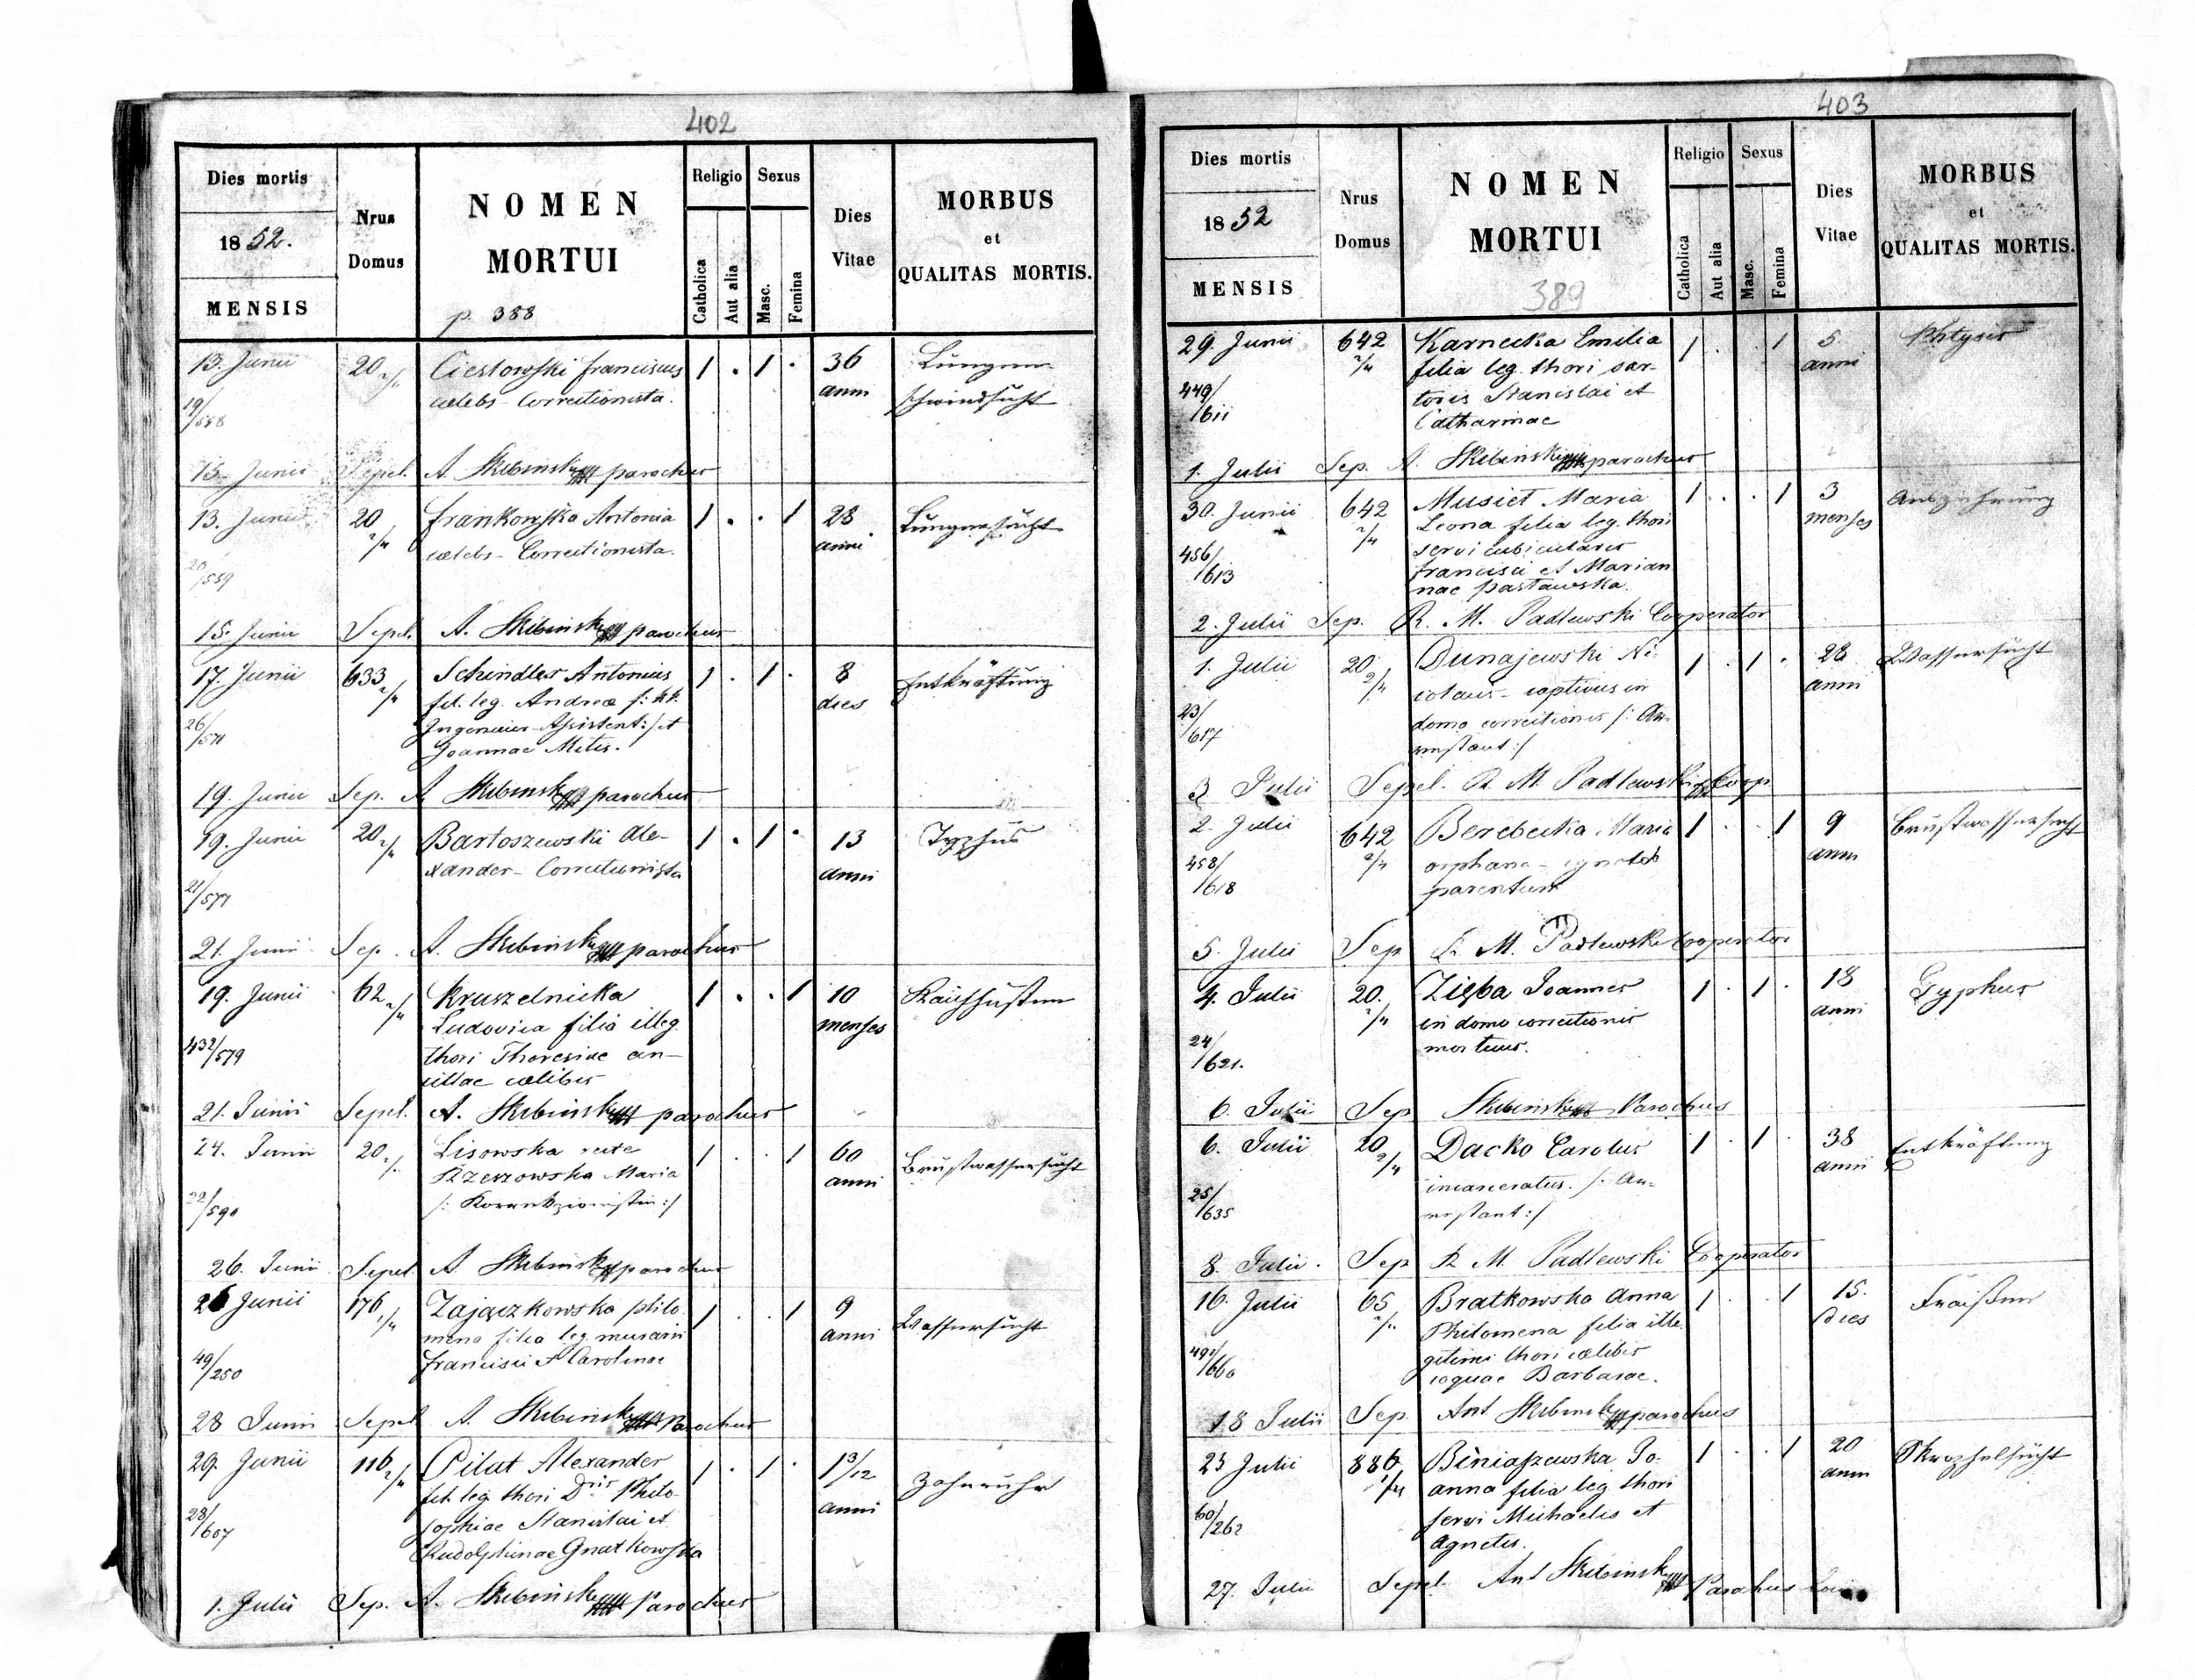 402
Dies mortis
1852.
MENSIS
Nrus
Domus
NOMEN
MORTUI
p. 388
Religio
Sexus
Catholica
Aut alia
Masc.
Femina
Dies
Vitae
MORBUS
et
QUALITAS MORTIS.
13. Junii 20 Ciestowski Franciscus 1 . 1 . 36 Lungen-
caelebs - Correctionista. anni schwindsucht
19/558
15. Junii Sepel. A. Skibinski parochus
13. Junii 20 Frankowska Antonia 1 . . 1 28 Lungensucht
caelebs - Correctionista. anni
20/559
15. Junii Sepel. A. Skibinski parochus
17. Junii 633 Schindler Antonius 1 . 1 . 8 Entkräftung
fil. leg. Andreae /: kk. dies
Ingenieur-Assistent :/ et
26/571
Joannae Mitis.
19. Junii Sep. A. Skibinski parochus
19. Junii 20 Bartoszewski Ale- 1 . 1 . 13 Typhus
xander - Correctionista anni
21/577
21. Junii Sep. A. Skibinski parochus
19. Junii 62 Kruszelnicka 1 . . 1 10 Keuchhusten
Ludovica filia illeg. menses
432/579 thori Theresiae an-
cillae caelibis
21. Junii Sepel. A. Skibinski parochus
24. Junii 20 Lisowska recte 1 . . 1 60 Brustwassersucht
Rzeszowska Maria anni
22/590
26. Junii Sepel A. Skibinski parochus
26 Junii 176 Zajączkowska Philo- 1 . . 1 9 Wassersucht
mena filia leg. murarii anni
49/250 Francisci et Carolinae
28 Junii Sepel A. Skibinski Parochus
29. Junii 116 Pilat Alexander 1 . 1 . 13/12 Zahnruhr
fil. leg. thori Dris Philo- anni
28/607 sophiae Stanislai et
Rudolphinae Gnatkowska
1. Julii Sep. A. Skibinski Parochus
403
Dies mortis
1852
MENSIS
Nrus
Domus
NOMEN
MORTUI
389
Religio
Sexus
Catholica
Aut alia
Masc.
Femina
Dies
Vitae
MORBUS
et
QUALITAS MORTIS.
29. Junii 642 Karnecka Emilia 1 . . 1 5 Phtysis
filia leg. thori sar- anni
449/611 toris Stanislai et
Catharinae
1. Julii Sep. A. Skibinski parochus
30. Junii 642 Musiet Maria 1 . . 1 3 Auszehrung
Leona filia leg. thori menses
servi cubicularis
456/613 Francisci et Marian
nae Pastawska.
2. Julii Sep. R. M. Padlewski Cooperator
1. Julii 20 Dunajewski Ni- 1 . 1 . 28 Wassersucht
colaus - captivus in anni
23/617 domo correctionis /: Ar-
restant :/
3 Julii Sepel. R. M. Padlewski Coop.
2. Julii 642 Berebecka Maria 1 . . 1 9 Brustwassersucht
458/618 orphana - ignotor anni
parentum
5. Julii Sep R. M. Padlewski Cooperator
4. Julii 20. Zięba Joannes 1 . 1 . 18 Typhus
in domo correctionis anni
24/621. mortuus.
6. Julii Sep Skibinski Parochus
6. Julii 20 Dacko Carolus 1 . 1 . 38 Entkräftung
incarceratus. /: Ar- anni
25/635 restant :/
8. Julii. Sep R. M. Padlewski Cooperator
16. Julii 65 Bratkowska Anna 1 . . 1 15. Fraißen
Philomena filia ille- Dies
491/660 gitimi thori caelibis
coquae Barbarae.
18 Julii Sep. Ant Skibinski parochus
25 Julii 886 Biniaszewska Jo- 1 . . 1 20 Skrophelsucht
anna filia leg. thori anni
60/262 servi Michaelis et
Agnetis.
27. Julii Sepel. Ant Skibinski Parochus